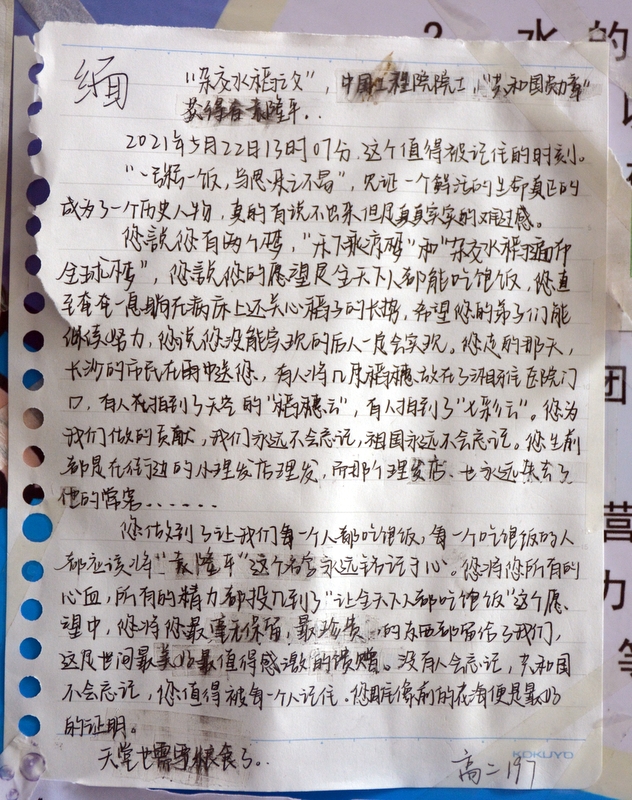 2. 水的
缅 "杂交水稻之父"，中国工程院院士，"共和国勋章"
获得者袁隆平..
2021年5月22日13时07分，这个值得被记住的时刻。
"一粥一饭，当思来之不易"，见证一个鲜活的生命真正的
成为了一个历史人物，真的有说不出来但是真真实实的难过感。
您說您有两个梦，"禾下乘凉梦"和"杂交水稻覆盖
全球梦"，您說您的愿望是全天下人都能吃饱饭，您直
至奄奄一息躺在病床上还关心稻子的长势，希望您的弟子们能
继续努力，您说您没能实现的后人一定会实现。您走的那天，
长沙的市民在雨中送您，有人将几度稻穗放在了湘雅医院门
口，有人拍到了天空的"稻穗云"，有人拍到了"七彩云"。您为
我们做的贡献，我们永远不会忘记，祖国永远不会忘记。您生前
都是在街边的小理发店理发，而那个理发店、也永远失去了
他的常客......
您做到了让我们每一个人都吃饱饭，每一个吃饱饭的人
都应该将"袁隆平"这个名字永远铭记于心。您将您所有的
心血，所有的精力都投入到了"让全天下人都吃饱饭"这个愿
望中，您将您最毫无保留，最珍贵的东西都留给了我们，
这是世间最美好最值得感激的馈赠。没有人会忘记，共和国
不会忘记，您值得被每一个人记住。您雕像前的花海便是最好
的证明。
天堂也需要粮食了..
KOKUYO
高二197
团
营
力
等